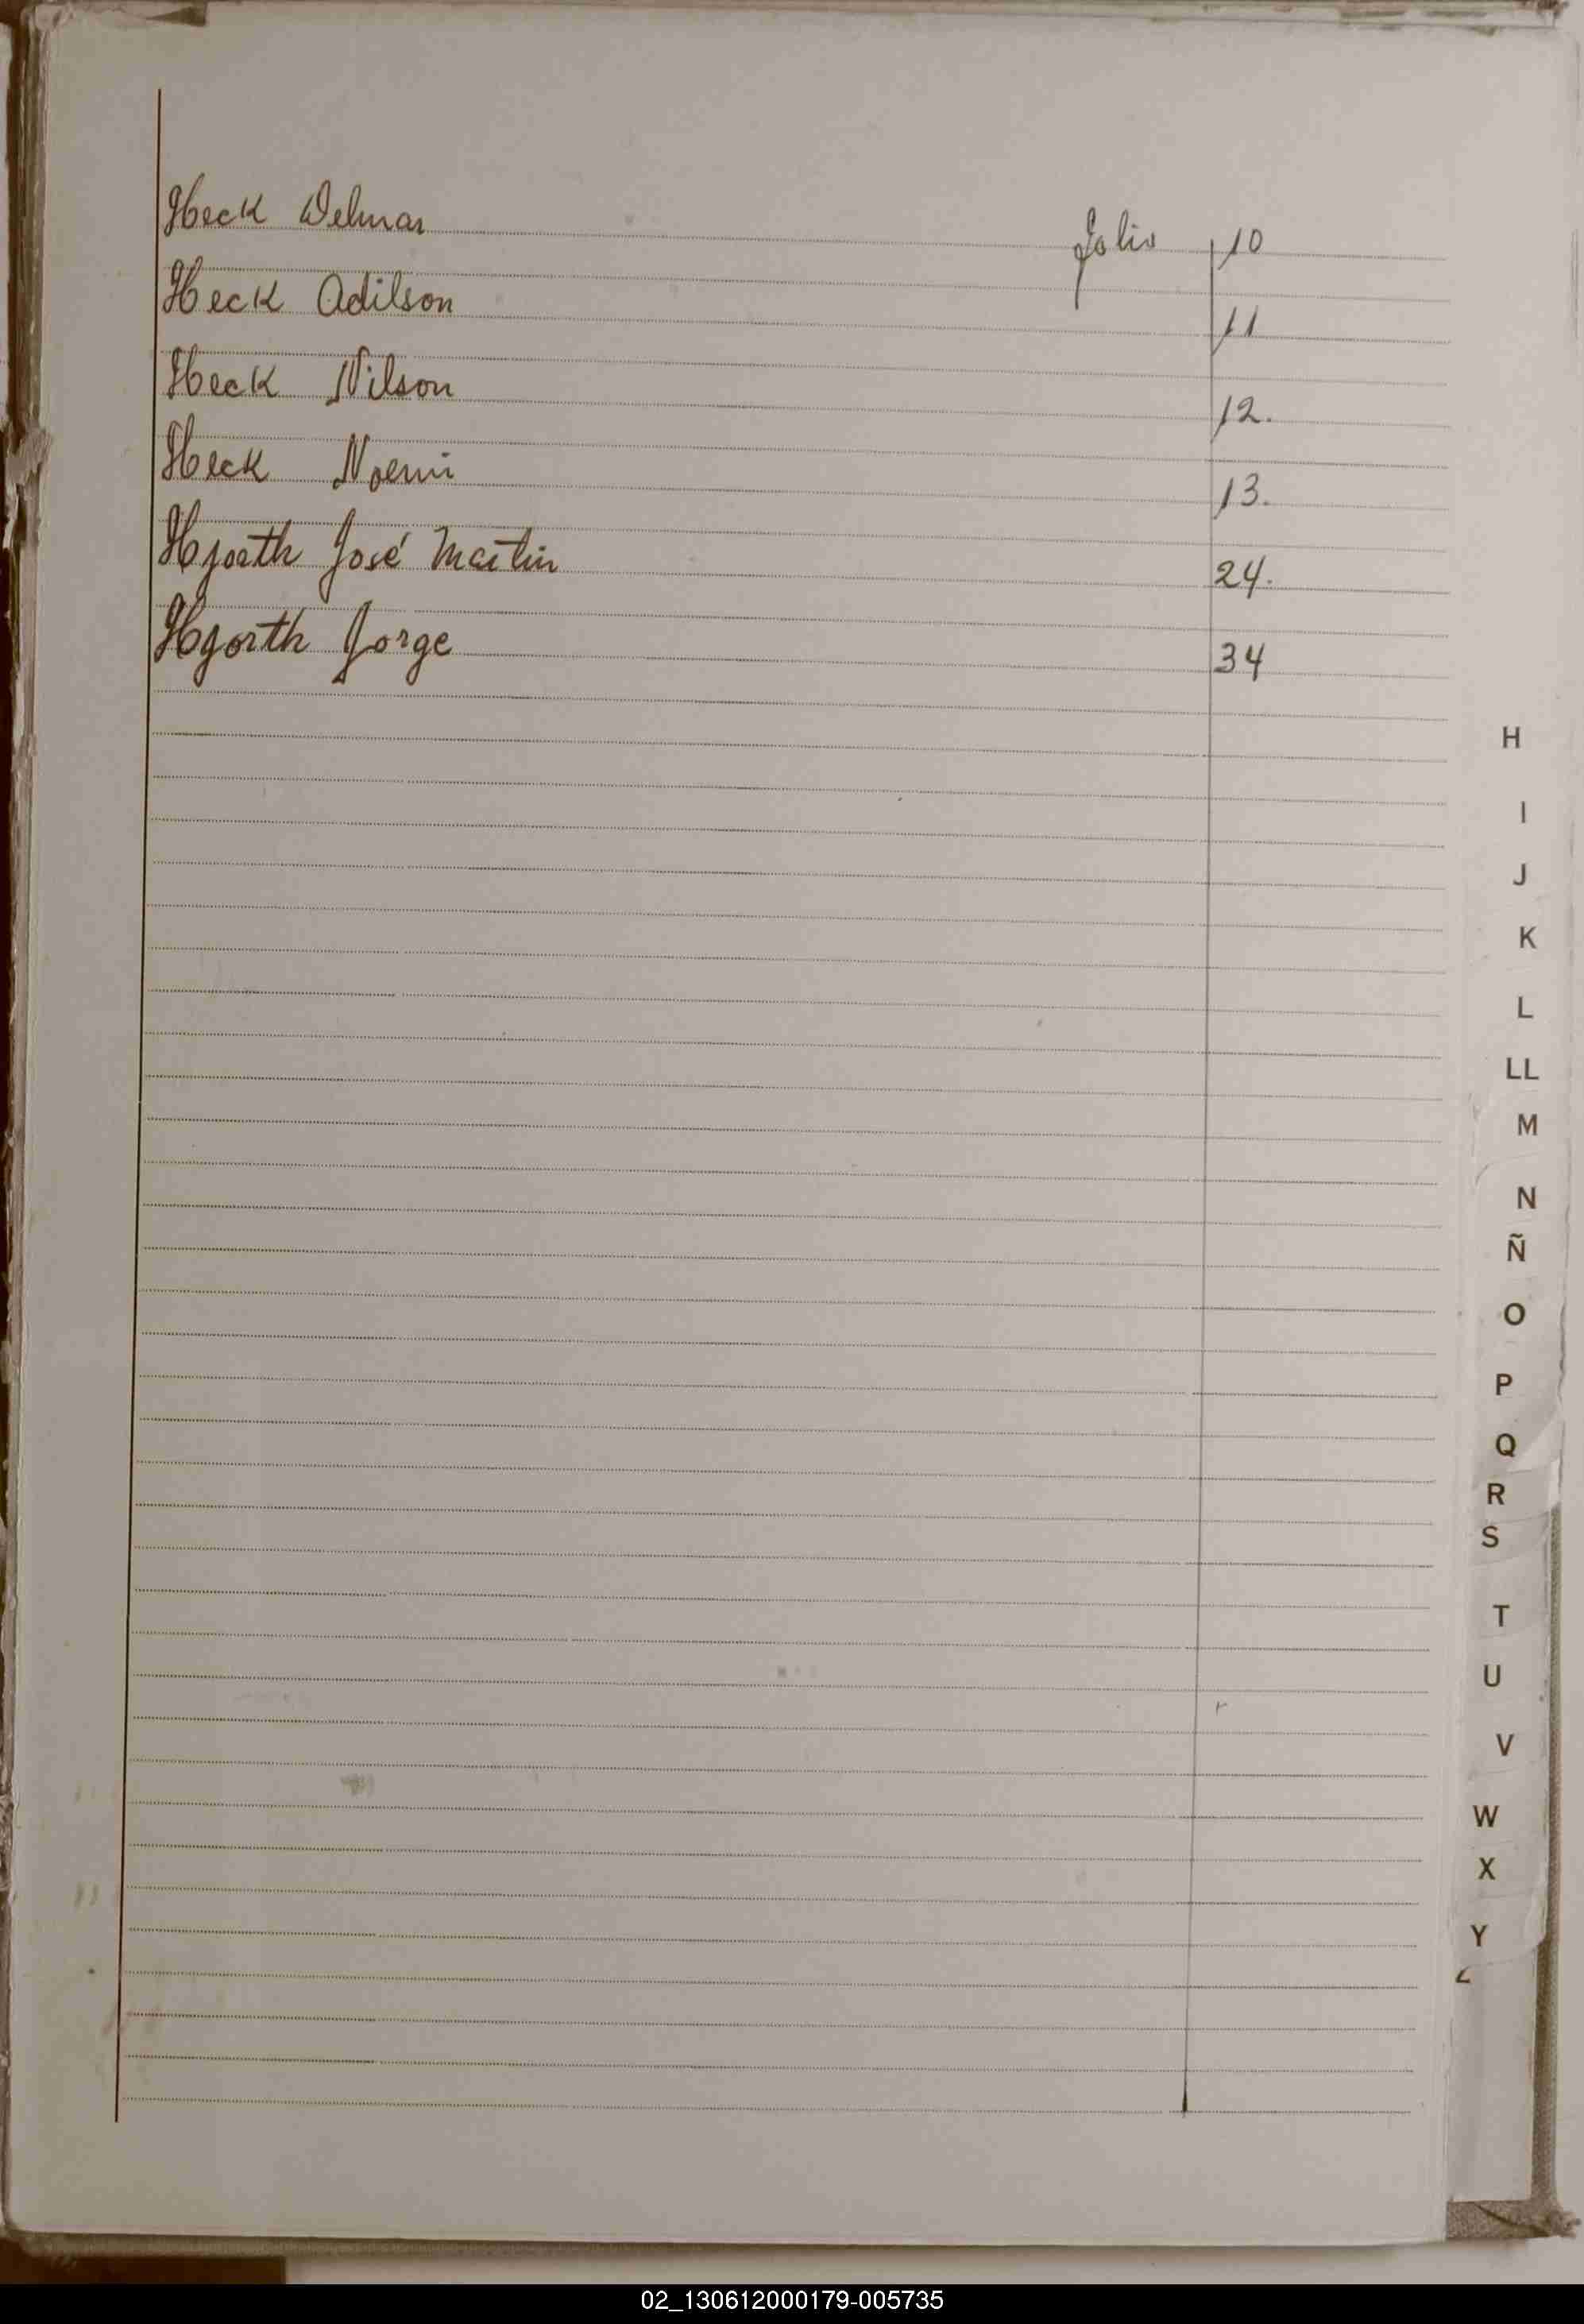 Heck Delmar folio 10
Heck Adilson 11
Heck Nilson 12.
Heck Noemi 13.
Hjorth José Martin 24.
Hjorth Jorge 34
H
I
J
K
L
LL
M
N
Ñ
O
P
Q
R
S
T
U
V
W
X
Y
Z
02_130612000179-005735